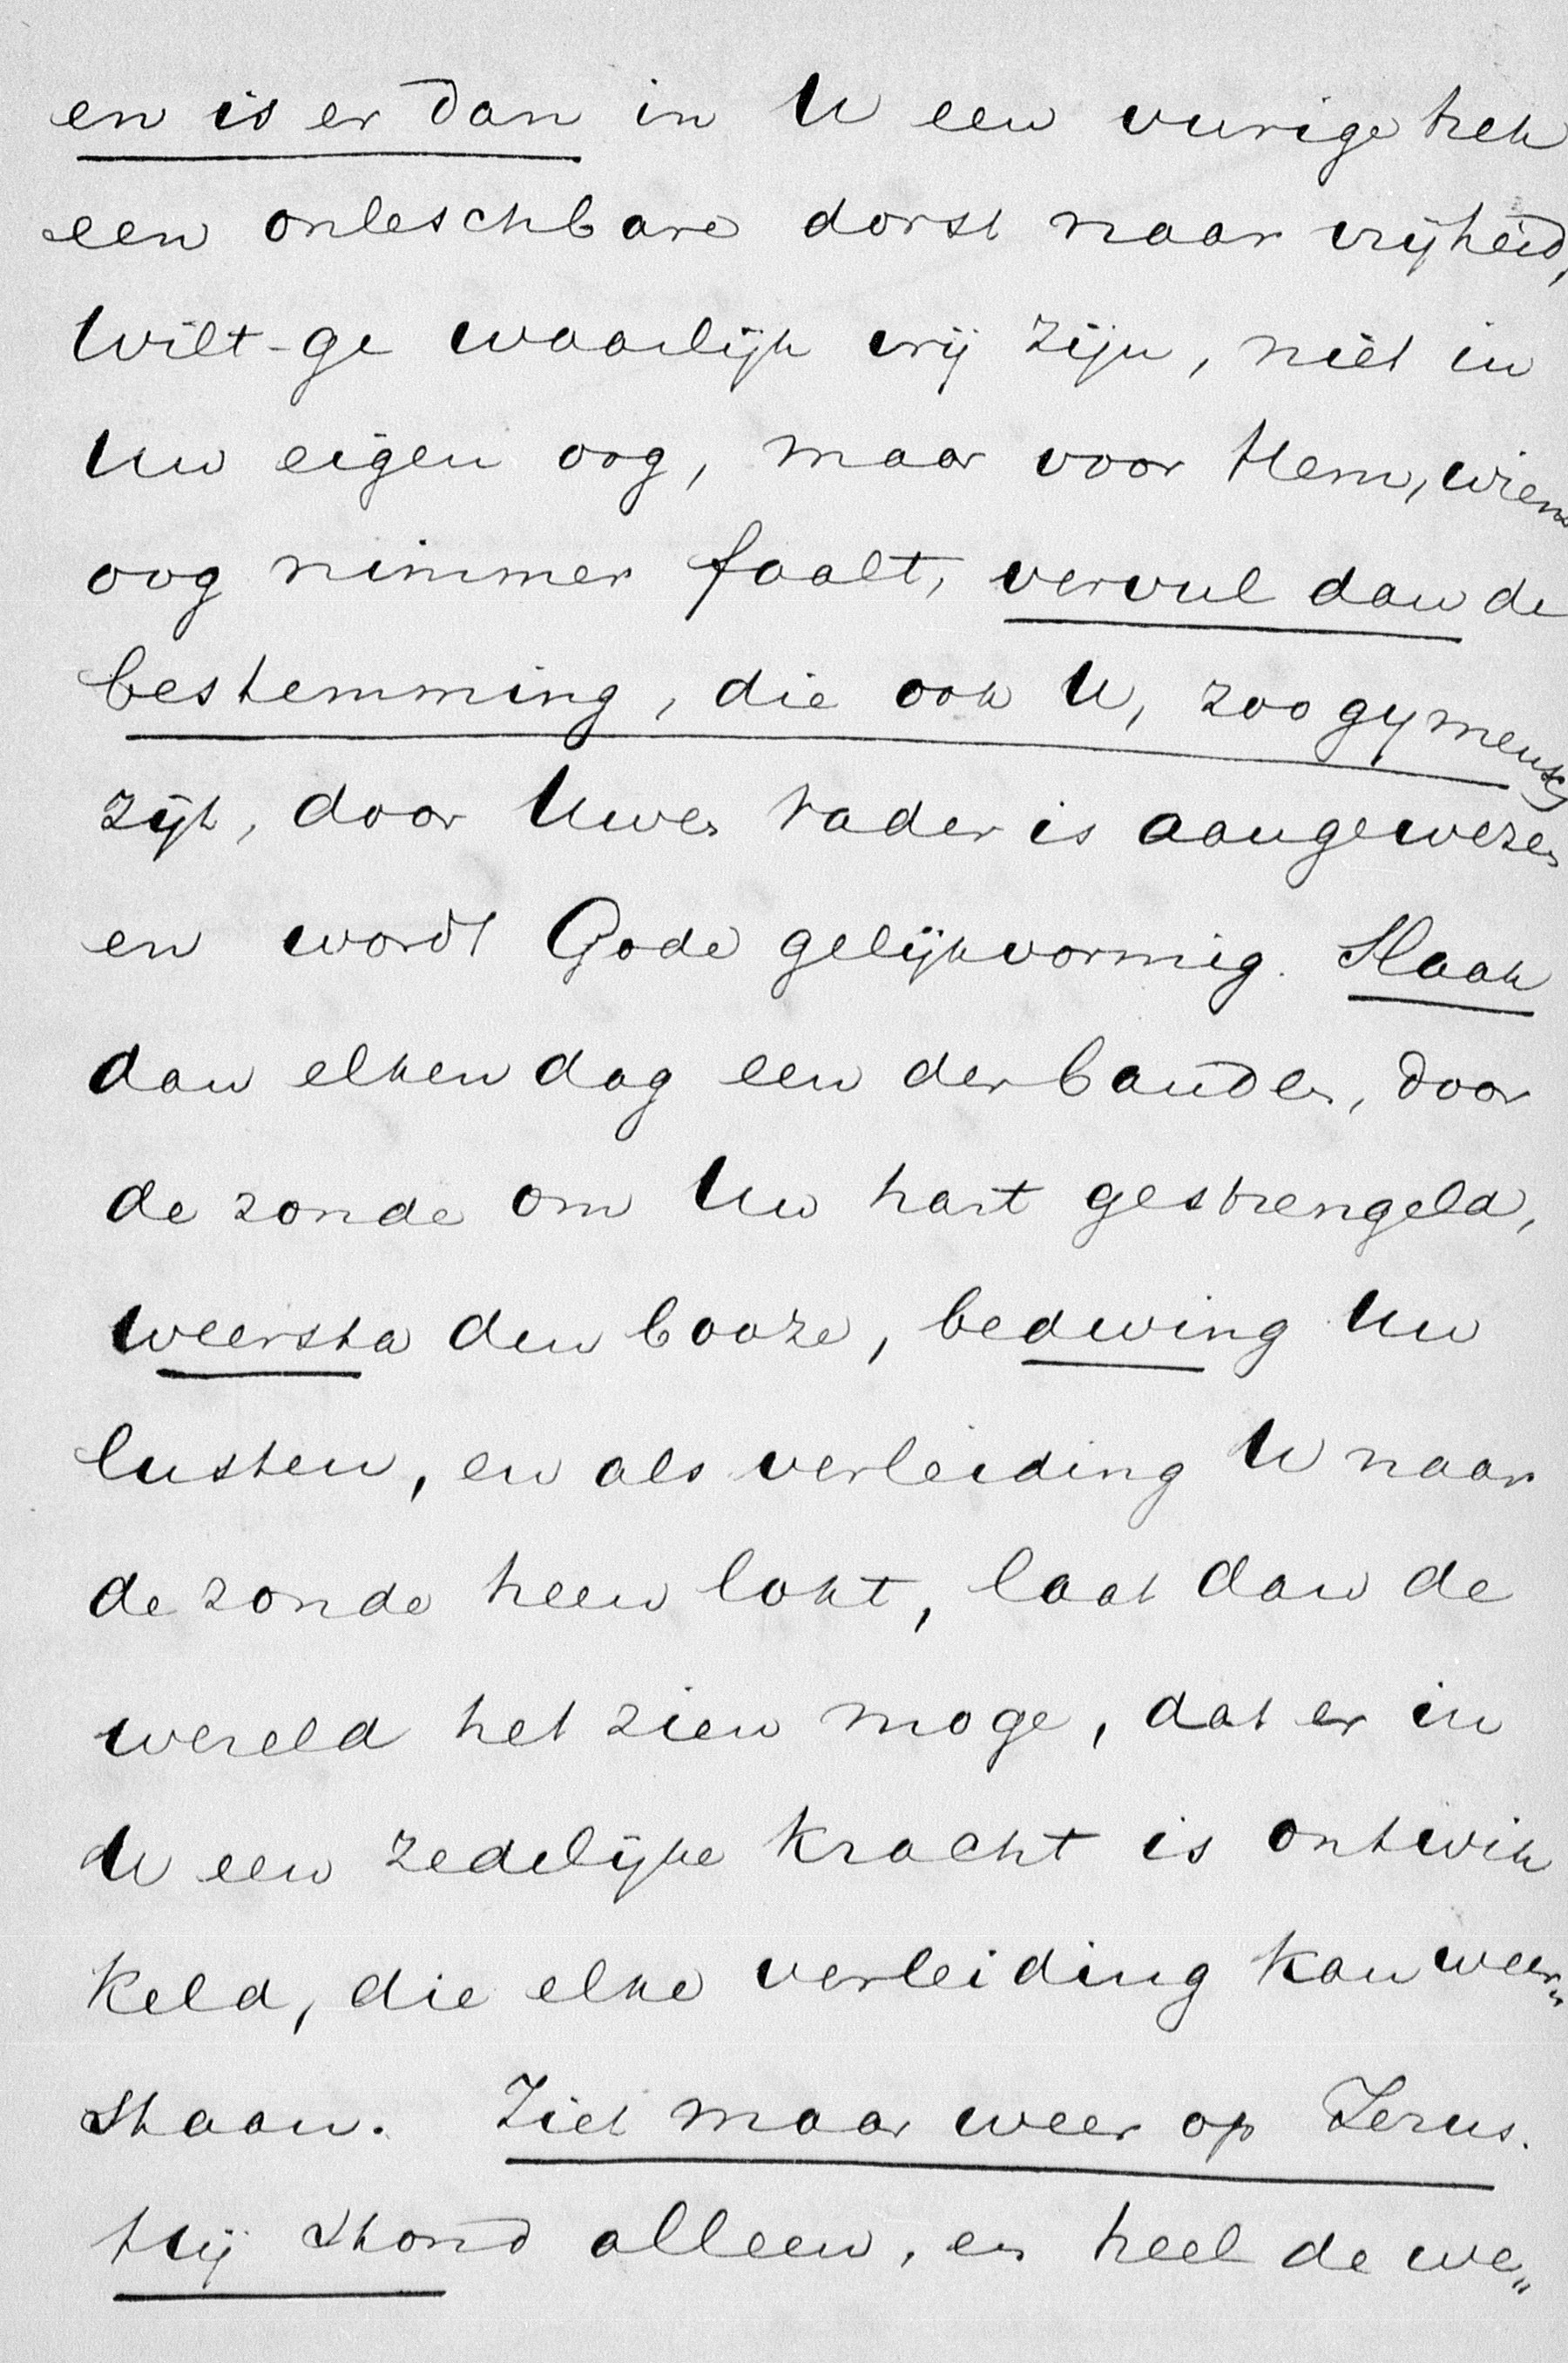 en is er dan in U een vurige trek
een onleschbare dorst naar vrijheid,
Wilt-ge waarlijk vrij zijn, niet in
Uw eigen oog, maar voor Hem, wiens
oog nimmer faalt, vervul dan de
bestemming, die ook U, zoo gij mensch
zijt, door Uwen Vader is aangewezen
en wordt Gode gelijkvormig. Slaak
dan elken dag een der banden, door
de zonde om Uw hart gestrengeld,
weersta den booze, bedwing Uw
lusten, en als verleiding U naar
de zonde heen lokt, laat dan de
wereld het zien moge, dat er in
U een zedelijke kracht is ontwik
keld, die elke verleiding kan weer„
staan. Ziet maar weer op Jezus.
Hij stond alleen, en heel de we„